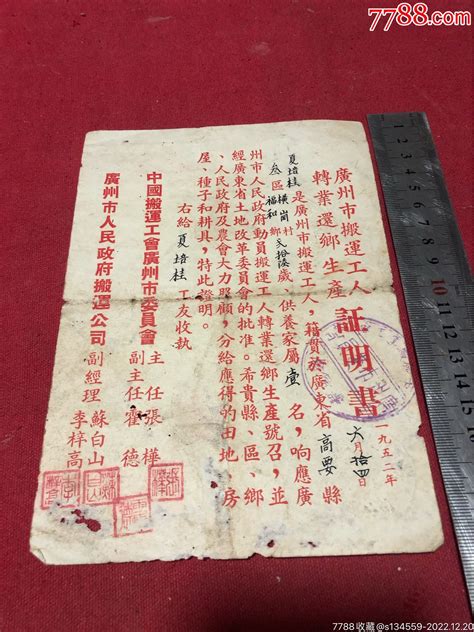 7788.com
廣州市搬運工人
轉業還鄉生產
証明書
夏培桂是廣州市搬運工人,籍貫於廣東省高要縣
叁區福和鄉橫崗村 歲,供養家屬壹名,響應廣
州市人民政府動員搬運工人轉業還鄉生產號召,並
經廣東省土地改革委員會的批准。希貴縣、區、鄉
、人民政府及農會大力照顧,分給應得的田地、房
屋、種子和耕具,特此證明。
右給夏培桂工友收執
中國搬運工會廣州市委員會 主任 張樺
副主任 霍德
廣州市人民政府搬運公司 副經理 蘇白山
李梓高
一九五二年六月拾四日
7 8 9 10 11 12 13 14 15 16
7788收藏@s134559-2022.12.20